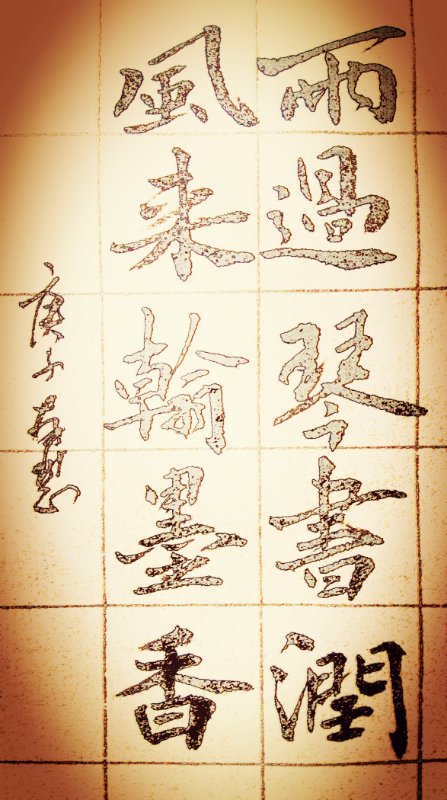 雨過琴書潤
風来翰墨香
庚子